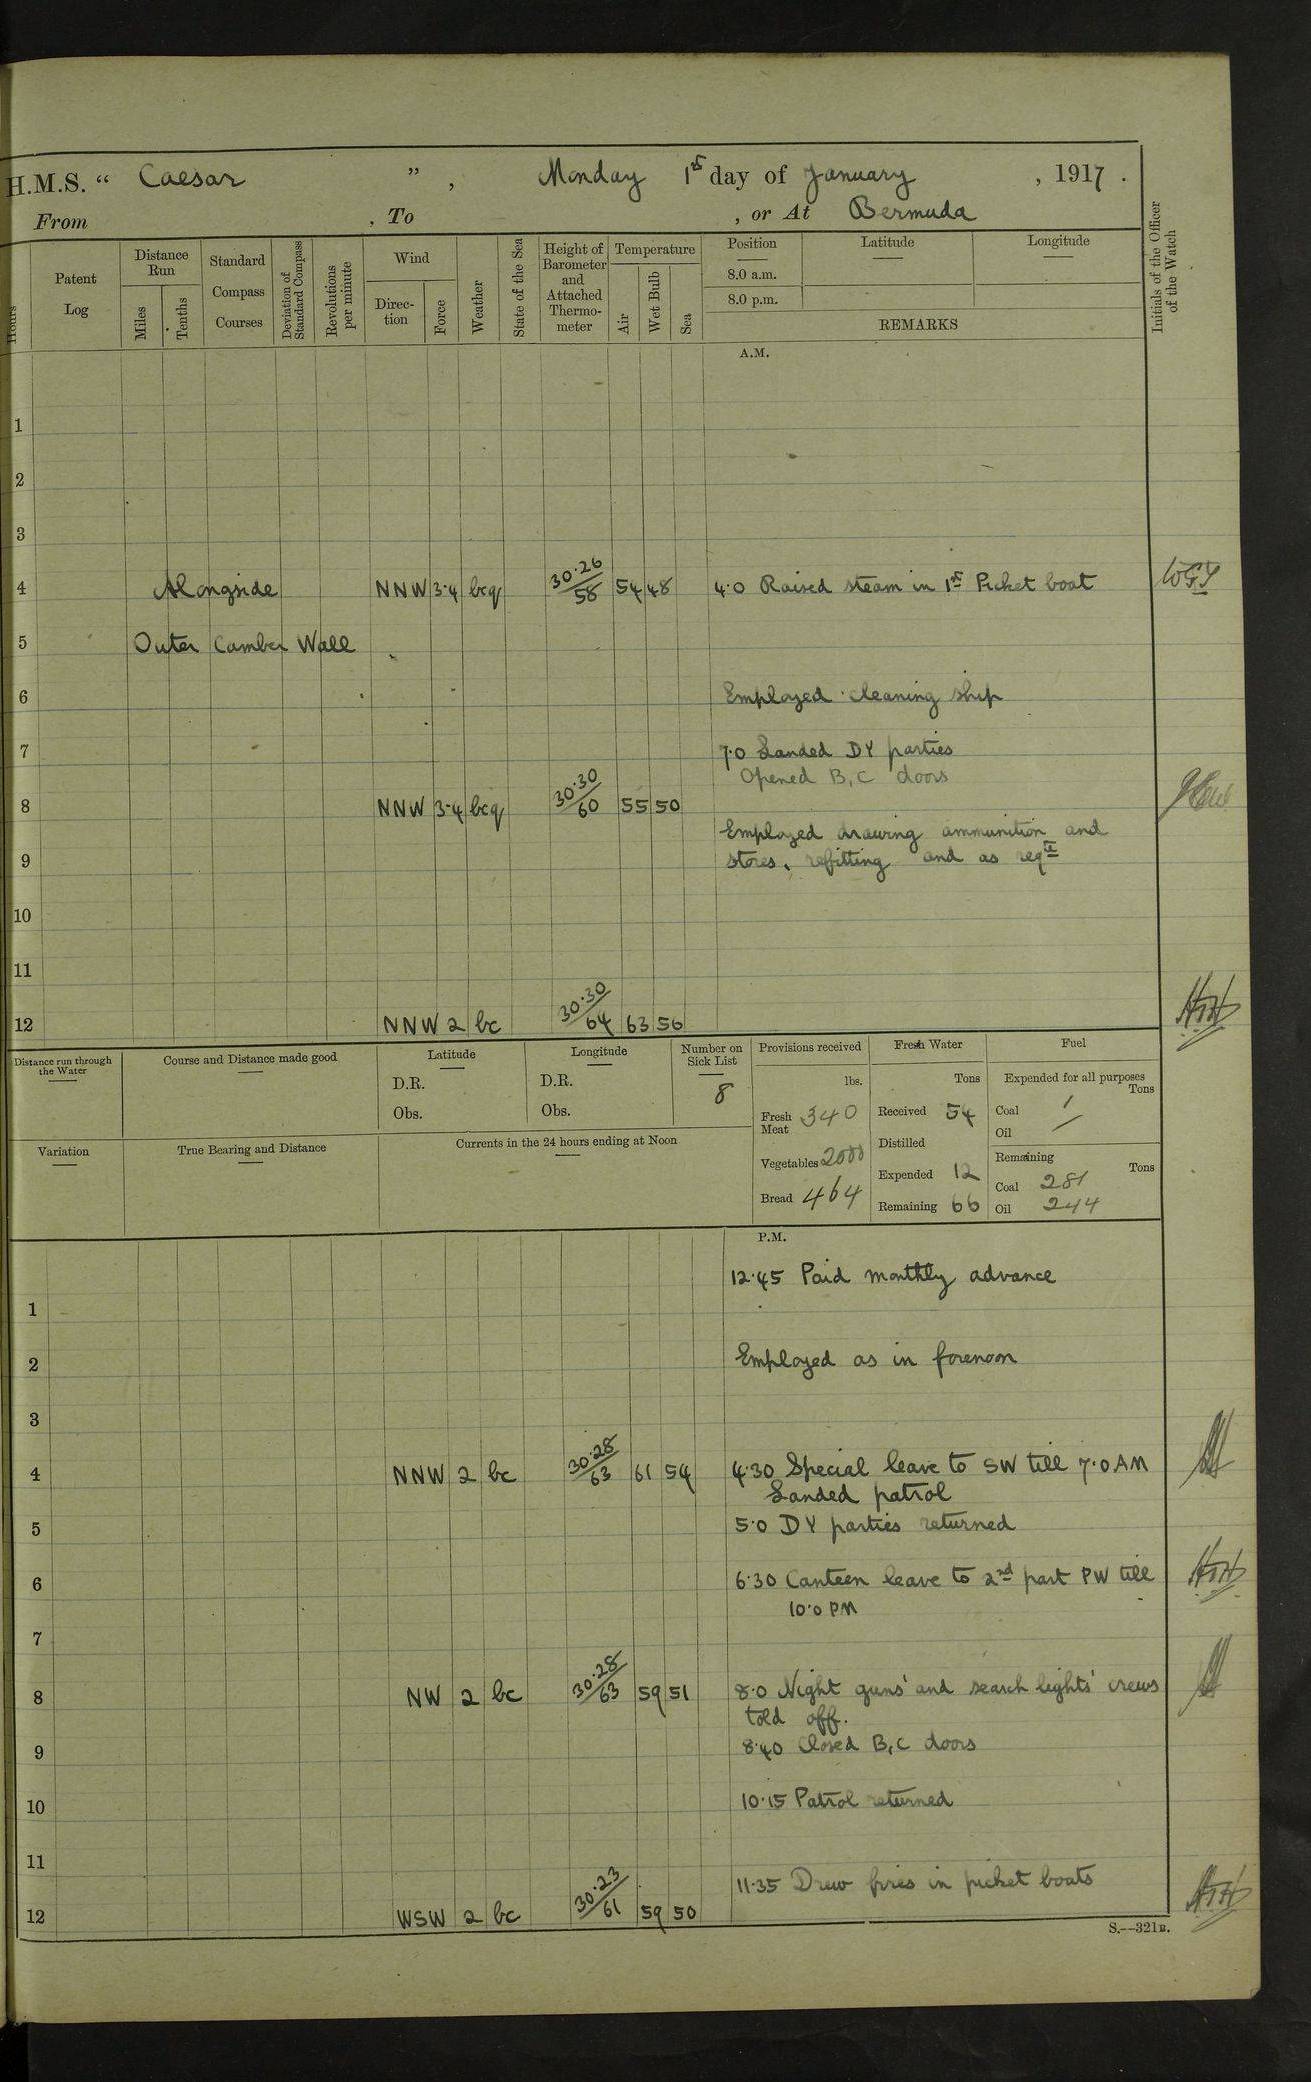 H.M.S. “ Caesar ” , Monday 1st day of January , 1917 .
From , To , or At Bermuda
Hours
Patent Log
Distance Run
Miles
Tenths
Standard Compass Courses
Deviation of Standard Compass
Revolutions per minute
Wind
Direc-tion
Force
Weather
State of the Sea
Height of Barometer and Attached Thermo-meter
Temperature
Air
Wet Bulb
Sea
Position
8.0 a.m.
8.0 p.m.
Latitude
Longitude
REMARKS
Initials of the Officer of the Watch
A.M.
1
2
3
4 Alongside NNW 3·4 bcq 30·26/58 54 48 4·0 Raised steam in 1st Picket boat WGY
5 Outer Camber Wall
6 Employed cleaning ship
7 7·0 Landed DY parties
Opened B, C doors
8 NNW 3·4 bcq 30·30/60 55 50
Employed drawing ammunition and
9 stores, refitting and as reqd
10
11
12 NNW 2 bc 30·30/64 63 56
Distance run through the Water
Course and Distance made good
Latitude
D.R.
Obs.
Longitude
D.R.
Obs.
Number on Sick List
8
Provisions received
lbs.
Fresh Meat 340
Vegetables 2000
Bread 464
Fresh Water
Tons
Received 54
Distilled
Expended 12
Remaining 66
Fuel
Expended for all purposes
Tons
Coal 1
Oil /
Remaining
Tons
Coal 281
Oil 244
Variation
True Bearing and Distance
Currents in the 24 hours ending at Noon
P.M.
12·45 Paid monthly advance
1
2 Employed as in forenoon
3
4 NNW 2 bc 30·28/63 61 54 4·30 Special leave to SW till 7·0 AM
Landed patrol
5 5·0 DY parties returned
6 6·30 Canteen leave to 2nd part PW till
10·0 PM
7
8 NW 2 bc 30·28/63 59 51 8·0 Night guns' and search lights' crews
told off.
9 8·40 Closed B, C doors
10 10·15 Patrol returned
11
11·35 Drew fires in picket boats
12 WSW 2 bc 30·23/61 59 50
S.—321B.